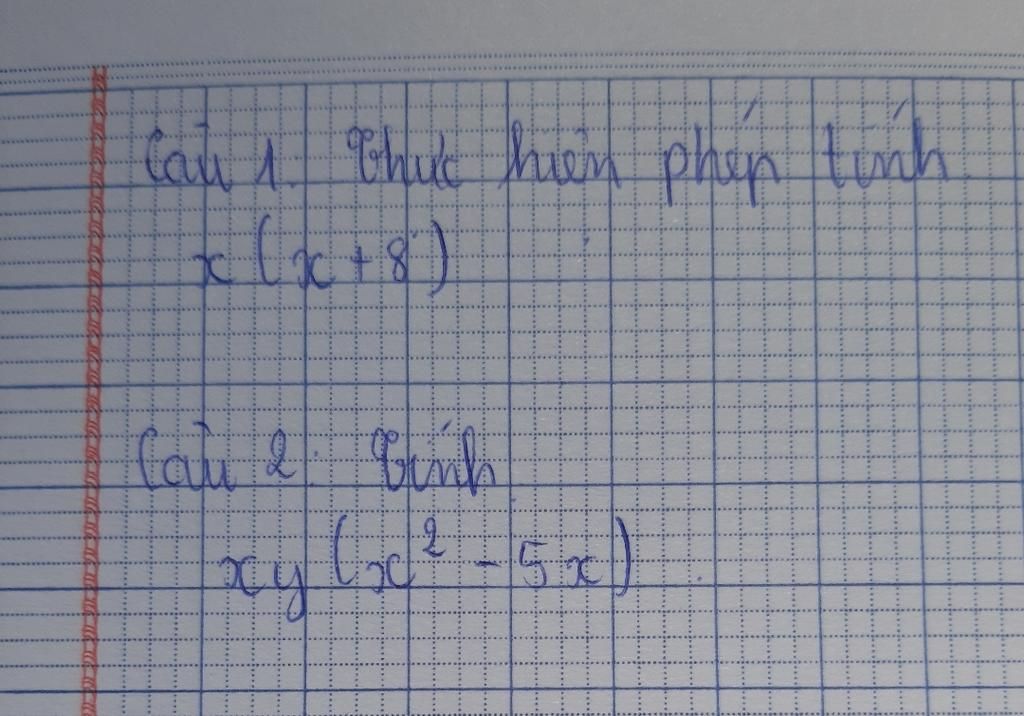 Câu 1. Thực hiện phép tính
x(x+8)
Câu 2: Tính
xy(x² - 5x)